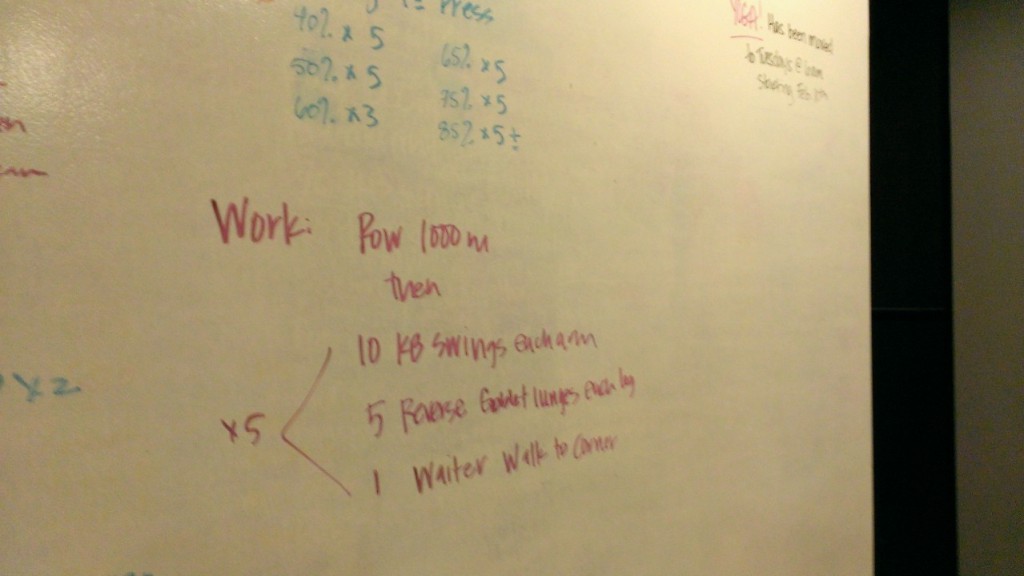 Press
40% x 5
50% x 5
60% x 3
65% x 5
75% x 5
85% x 5+
YOGA! Has been moved
to Tuesdays @ 6am
Starting Feb 11th
Work: Row 1000m
then
10 KB swings each arm
5 Reverse Goblet lunges each leg
1 Waiter Walk to Corner
x5
x 2